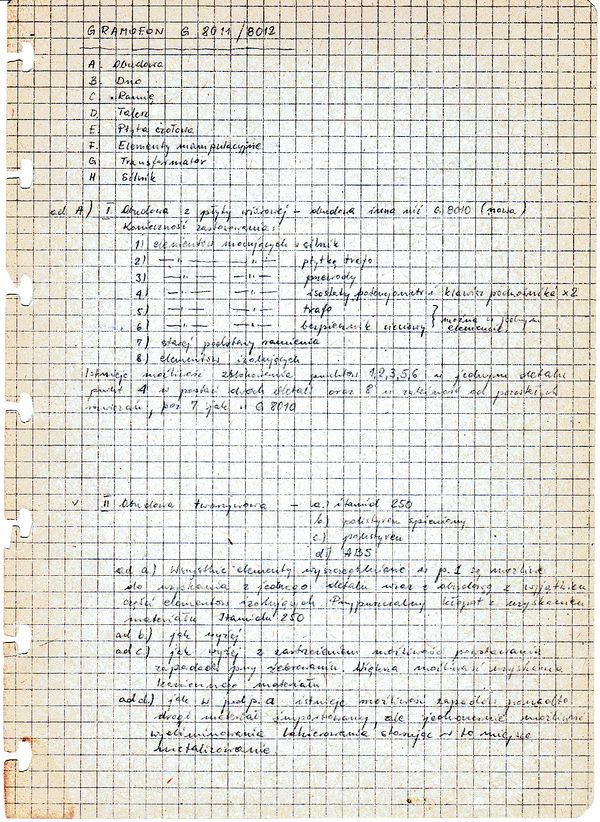 GRAMOFON G 8011/8012
A. Obudowa
B. Dno
C. Ramię
D. Talerz
E. Płyta czołowa
F. Elementy manipulacyjne
G. Transformator
H Silnik
ad A) I Obudowa z płyty wiórowej – obudowa inna niż G 8010 (nowa)
Konieczność zastosowania:
1) elementów mocujących silnik
2) —"— —"— płytkę trafo
3) —"— —"— przewody
4) —"— —"— isostaty, potencjometr i klawisz podnośnika x2
5) —"— —"— trafo
6) —"— —"— bezpiecznik sieciowy } można w jednym elemencie
7) stałej podstawy ramienia
8) elementów izolujących
Istnieje możliwość punktów 1,2,3,5,6 w jednym detalu
punkt 4 w postaci dwóch detali oraz 8 w zależności od pozostałych
rozwiązań, poz 7 jak w G 8010
v II Obudowa tworzywowa – a.) itamid 250
b.) polistyren spieniony
c.) polistyren
d.) ABS
ad a.) Wszystkie elementy wyszczególnione w p. I są możliwe
do uzyskania z jednego detalu wraz z obudową z wyjątkiem
części elementów izolujących. Przypuszczalny kłopot z uzyskaniem
materiału Itamidu 250
ad b.) jak wyżej
ad c.) jak wyżej z zastrzeżeniem możliwości powstawania
zapadań przy żebrowaniu. Większa możliwość uzyskania
materiału
ad d.) jak w pod p. a istnieje możliwość zapadów ponadto
drogi materiał importowany, ale jednocześnie możliwość
wyeliminowania lakierowania stosując w to miejsce
metalizowanie